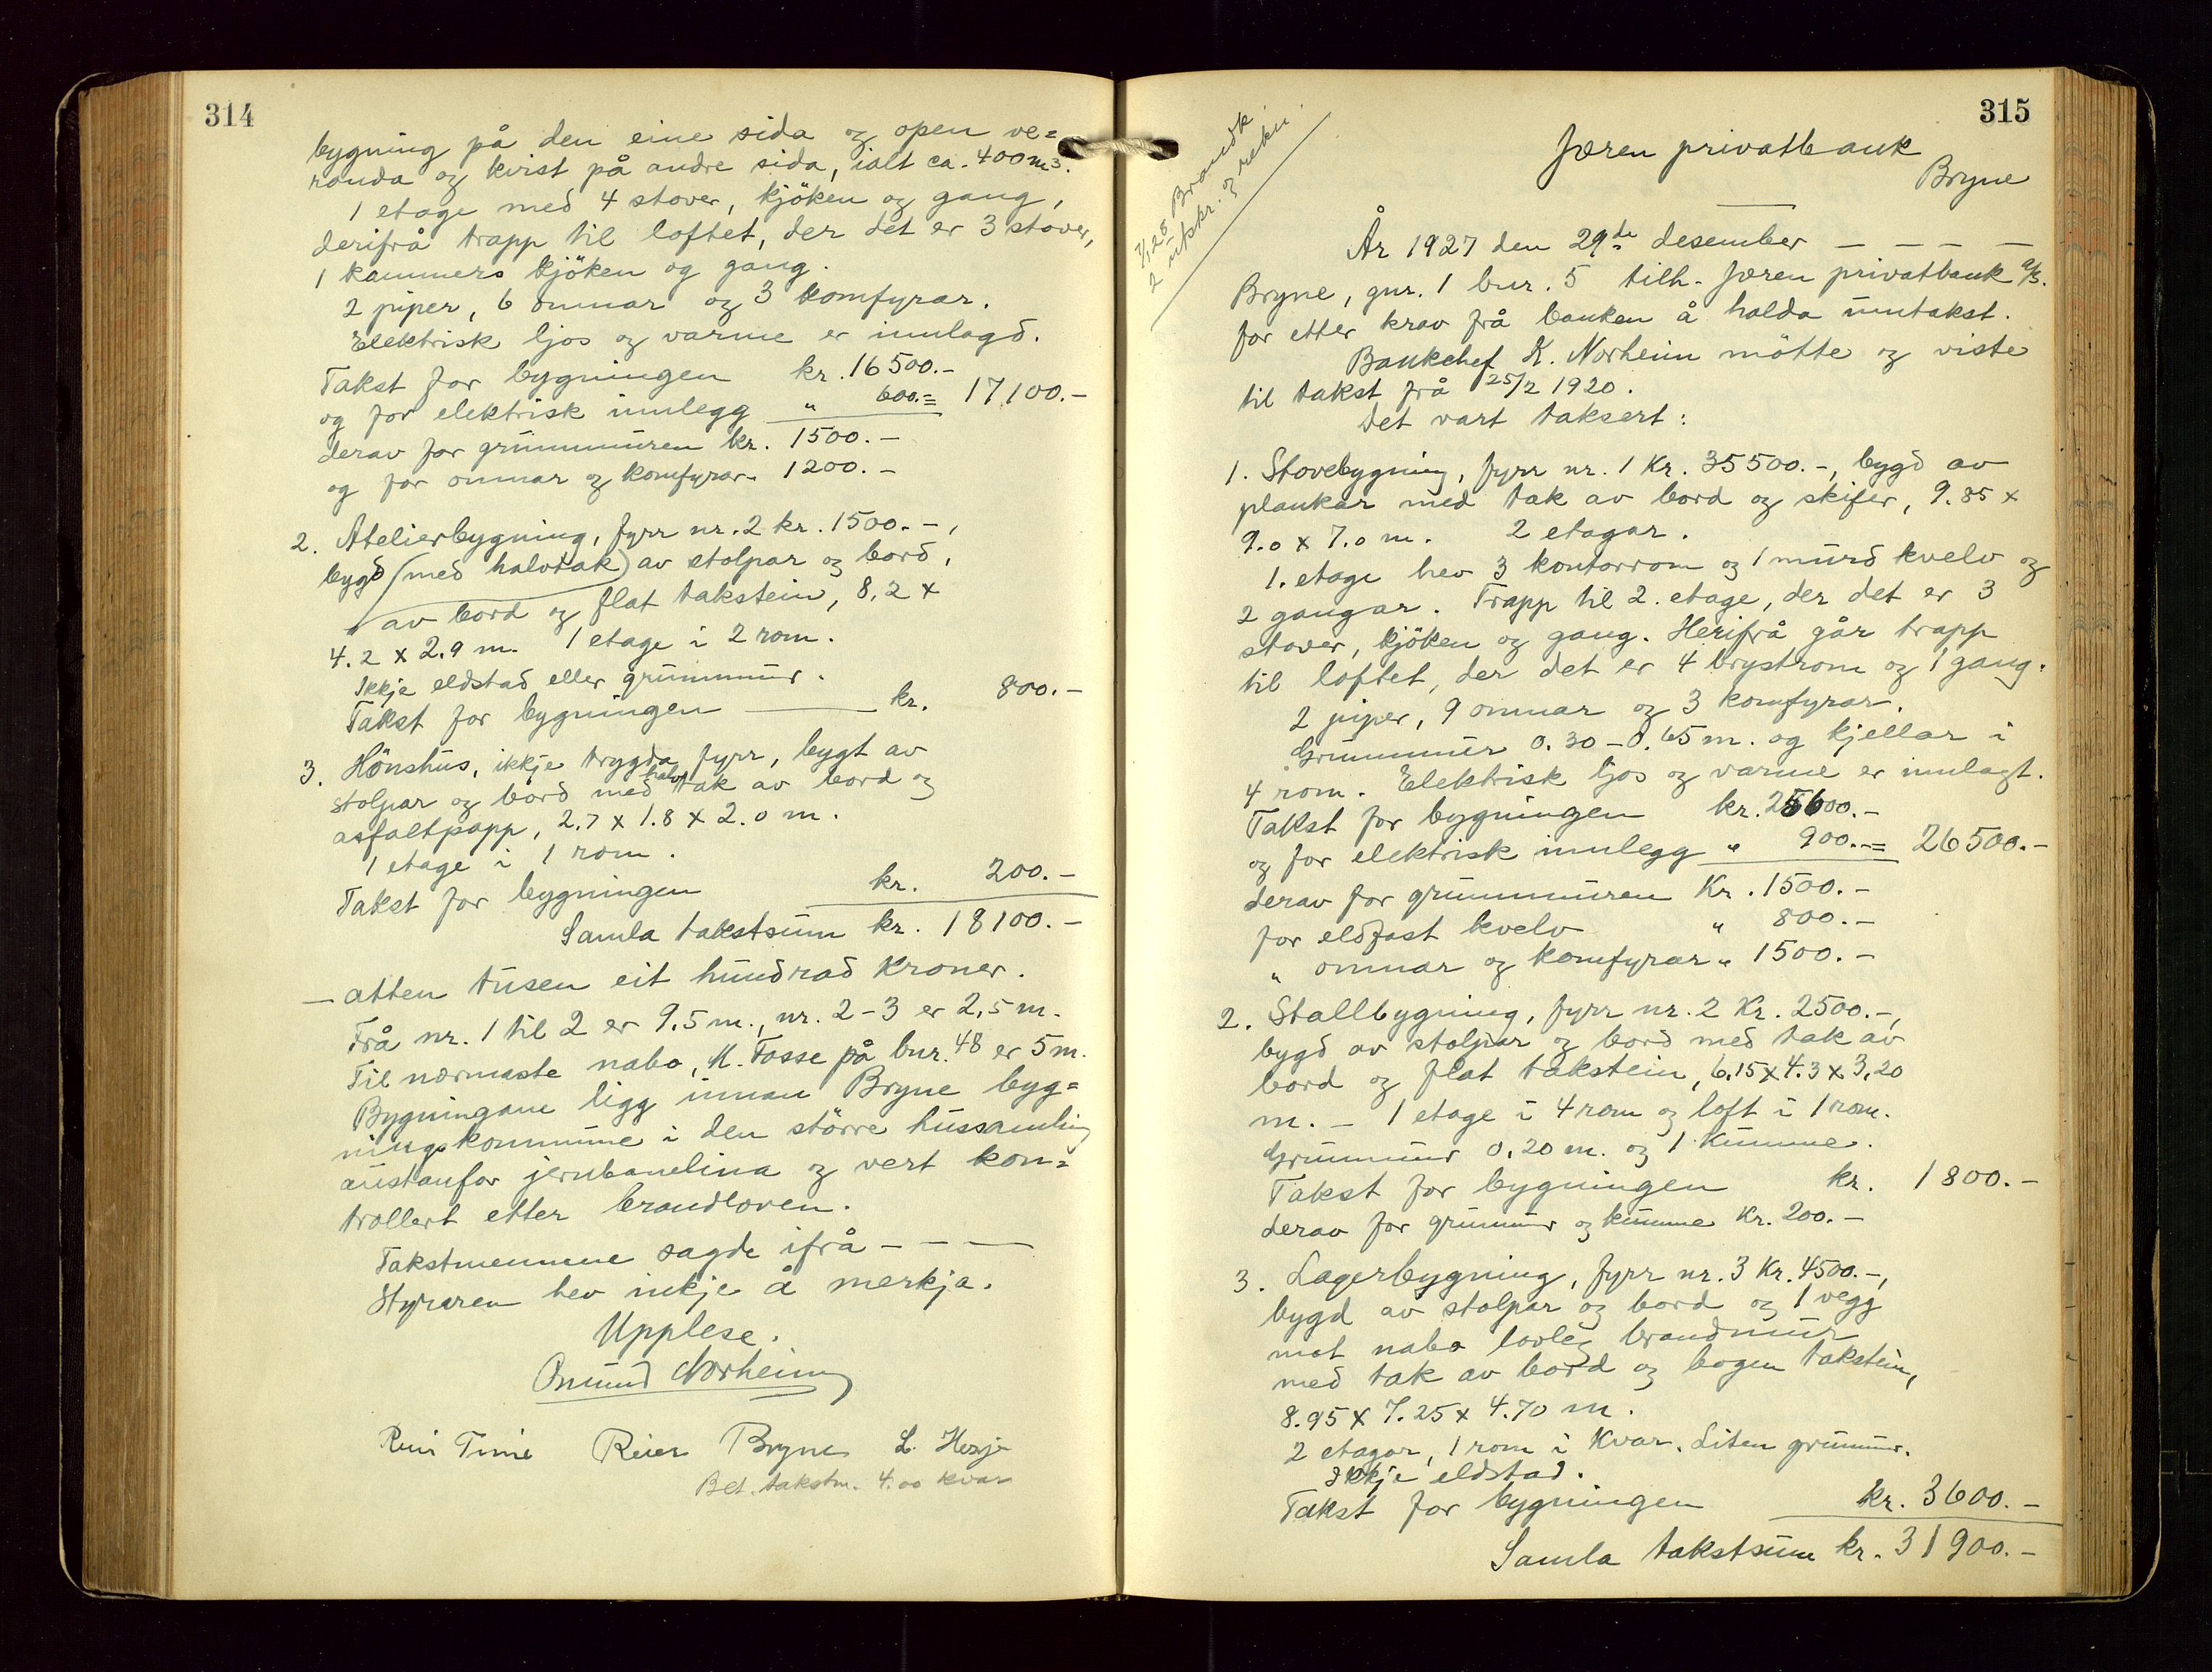 314
bygning på den eine sida og open ve=
randa og kvist på andre sida, ialt ca. 400 m³.
1 etage med 4 stover, kjöken og gang,
derifrå trapp til loftet, der det er 3 stover,
1 kammers kjöken og gang.
2 piper, 6 omnar og 3 komfyrar.
Elektrisk ljos og varme er innlagd.
Takst for bygningen kr. 16500.-
og for elektrisk innlegg " 600.= 17100.-
derav for grunnmuren kr. 1500.-
og for omnar og komfyrar " 1200.-
2. Atelierbygning, fyrr nr. 2 kr. 1500.-,
bygd (med halvtak) av stolpar og bord,
av bord og flat takstein, 8,2 x
4.2 x 2.9 m. 1 etage i 2 rom.
Ikkje eldstad eller grunnmur.
Takst for bygningen kr. 800.-
3. Hönshus, ikkje trygda fyrr, bygt av
stolpar og bord med halvtak av bord og
asfaltpapp, 2.7 x 1.8 x 2.0 m.
1 etage i 1 rom.
Takst for bygningen kr. 200.-
Samla takstsum kr. 18100.-
- atten tusen eit hundrad kroner.
Frå nr. 1 til 2 er 9.5 m., nr. 2-3 er 2,5 m.
Til nærmaste nabo, M. Fosse på bnr. 48 er 5 m.
Bygningane ligg innan Bryne byg=
ningskommune i den större hussamling
austanfor jernbanelina og vert kon=
trollert etter brandloven.
Takstmennene sagde ifrå - - -
Styraren hev inkje å merkja.
Upplese.
Osmund Norheim
Reier Time Reier Bryne L. Herje
Bet. takstm. 4.00 kvar
315
7/1 28 Brandk.
2 utskr. og rekn.
Jæren privatbank
Bryne
År 1927 den 29de desember - - - -
Bryne, gnr. 1 bnr. 5 tilh. Jæren privatbank a/s.
for etter krav frå banken å halda umtakst.
Bankchef K. Norheim mötte og viste
til takst frå 25/2 1920.
Det vart taksert:
1. Stovebygning, fyrr nr. 1 Kr. 35500.-, bygd av
plankar med tak av bord og skifer, 9.85 x
9.0 x 7.0 m. 2 etagar.
1. etage hev 3 kontorrom og 1 murd kvelv og
2 gangar. Trapp til 2. etage, der det er 3
stover, kjöken og gang. Herifrå går trapp
til loftet, der det er 4 brystrom og 1 gang.
2 piper, 9 omnar og 3 komfyrar.
Grunnmur 0.30 - 0.65 m. og kjellar i
4 rom. Elektrisk ljos og varme er innlagt.
Takst for bygningen kr. 25600.-
og for elektrisk innlegg " 900.-= 26500.-
derav for grunnmuren Kr. 1500.-
for eldfast kvelv " 800.-
" omnar og komfyrar " 1500.-
2. Stallbygning, fyrr nr. 2 Kr. 2500.-,
bygd av stolpar og bord med tak av
bord og flat takstein, 6.15 x 4.3 x 3,20
m. - 1 etage i 4 rom og loft i 1 rom.
Grunnmur 0,20 m. og 1 kumme.
Takst for bygningen kr. 1800.-
derav for grunnmur og kumme Kr. 200.-
3. Lagerbygning, fyrr nr. 3 Kr. 4500.-,
bygd av stolpar og bord og 1 vegg
mot nabo lovleg brandmur
med tak av bord og bogen takstein,
8.95 x 7.25 x 4.70 m.
2 etagar, 1 rom i Kvar. Liten grunnmur.
Ikkje eldstad.
Takst for bygningen kr. 3600.-
Samla takstsum kr. 31900.-